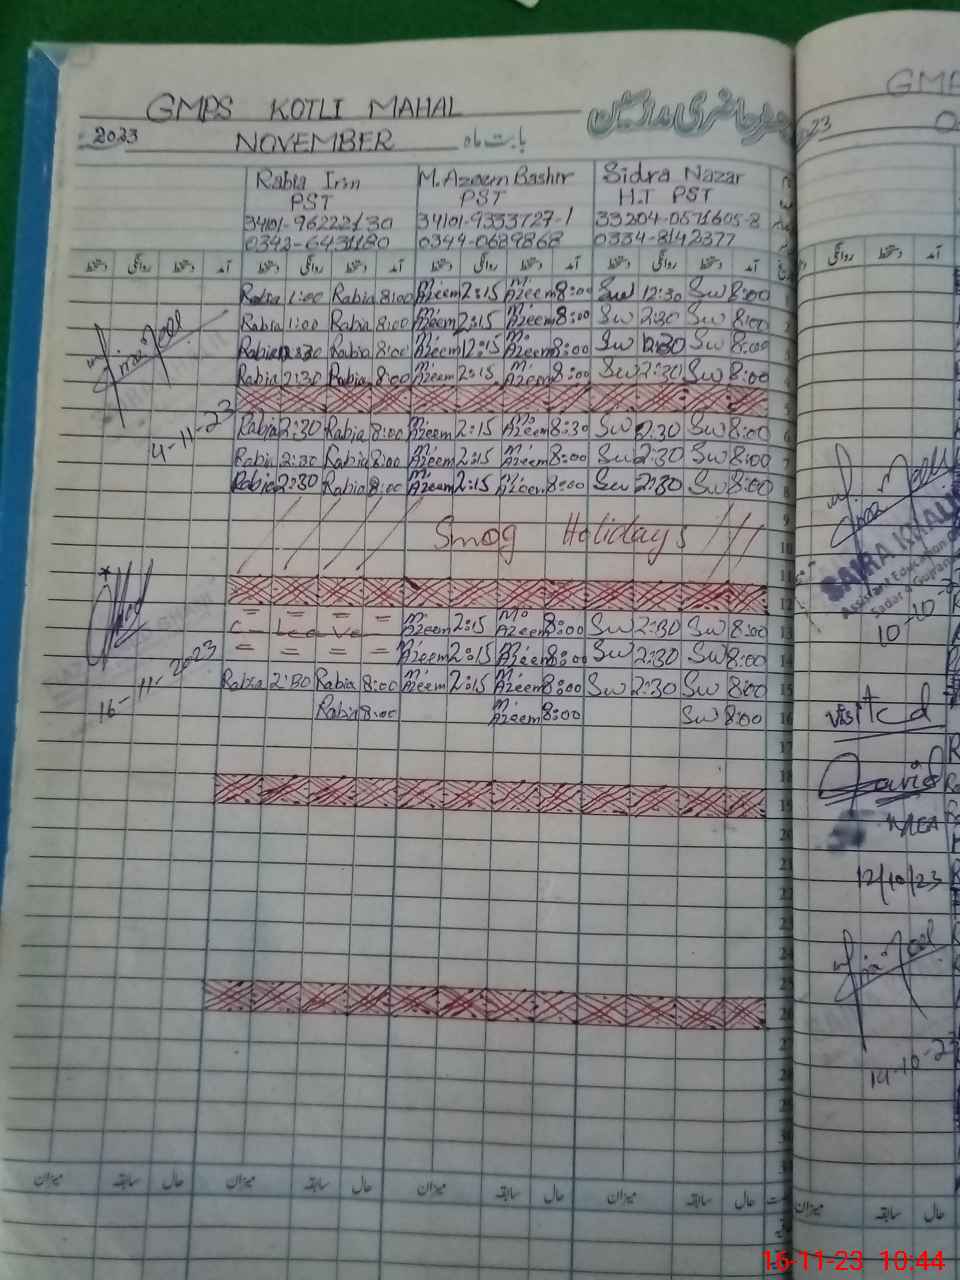 GMPS KOTLI MAHAL
2023 NOVEMBER بابت ماہ
Rabia Irm M. Azeem Bashir Sidra Nazar
PST PST H.T PST
34101-9622213 0 34101-9333727-1 33204-0571605-8
0342-6431180 0344-0689868 0334-8142377
دستخط روانگی دستخط آمد دستخط روانگی دستخط آمد دستخط روانگی دستخط آمد دستخط روانگی دستخط آمد
Rabia 1:00 Rabia 8:00 Azeem 2:15 M. Azeem 8:00 Sw 12:30 Sw 8:00
Rabia 1:00 Rabia 8:00 M. Azeem 2:15 M. Azeem 8:00 Sw 2:30 Sw 8:00
Rabia 12:30 Rabia 8:00 M. Azeem 12:15 M. Azeem 8:00 Sw 12:30 Sw 8:00
Rabia 2:30 Rabia 8:00 M. Azeem 2:15 M. Azeem 8:00 Sw 2:30 Sw 8:00
4-11-23
Rabia 2:30 Rabia 8:00 M. Azeem 2:15 M. Azeem 8:30 Sw 2:30 Sw 8:00
Rabia 2:30 Rabia 8:00 M. Azeem 2:15 M. Azeem 8:00 Sw 2:30 Sw 8:00
Rabia 2:30 Rabia 8:00 M. Azeem 2:15 Azeem 8:00 Sw 2:30 Sw 8:00
Smog Holidays
C- Leave M. Azeem 2:15 M. Azeem 8:00 Sw 2:30 Sw 8:00 13
= = = = M. Azeem 2:15 M. Azeem 8:00 Sw 2:30 Sw 8:00 14
Rabia 2:30 Rabia 8:00 M. Azeem 2:15 M. Azeem 8:00 Sw 2:30 Sw 8:00 15
16-11-2023
Rabia 8:00 M. Azeem 8:00 Sw 8:00 16
17
18
19
20
21
22
23
24
25
26
27
28
میزان سابقہ حال میزان سابقہ حال میزان سابقہ حال میزان سابقہ حال
روانگی دستخط آمد
SAIRA KHALI
Assistant Education
10-10-
Visited
Javid
MEA
12/10/23
14-10-23
میزان سابقہ حال
16-11-23 10:44